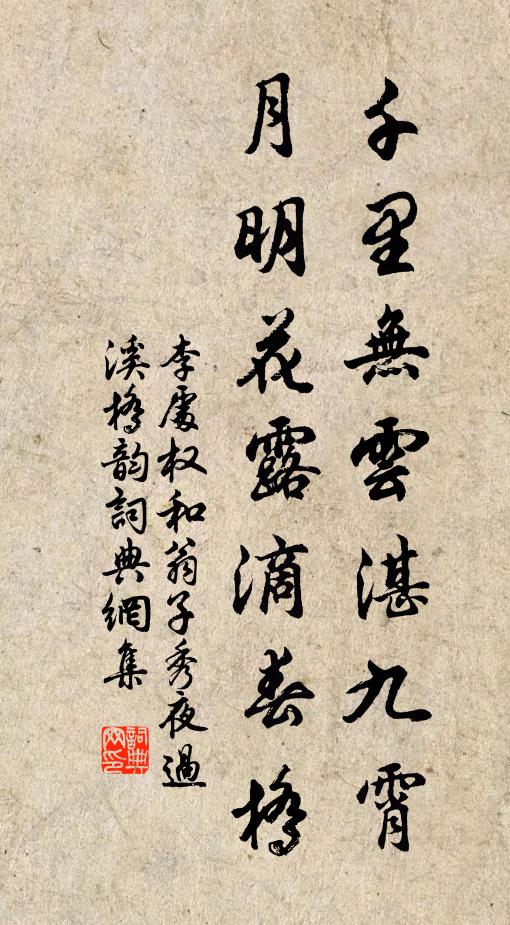 千里無雲湛九霄
月明花露滴春橋
李處权和翁子秀夜過
溪橋韵詞典網集
詞典网印